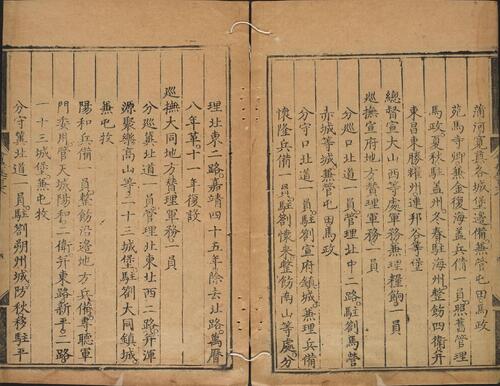 蒲河寬奠各城堡邊備兼管屯田馬政
苑馬寺卿兼金復海盖兵備一員照舊管理
馬政夏秋駐盖州冬春駐海州整飭四衛并
東昌東勝耀州連邦谷等堡
總督宣大山西等處軍務兼理糧餉一員
巡撫宣府地方賛理軍務一員
分巡口北道一員管理北中二路駐劄馬營
赤城等城兼管屯田馬政
分守口北道一員駐劄宣府鎮城兼理兵備
懷隆兵備一員駐劄懷來整飭南山等處分
理北東二路嘉靖四十五年除去北路萬曆
八年革十一年復設
巡撫大同地方賛理軍務一員
分巡冀北道一員管理北東北西二路并渾
源聚樂高山等三十三城堡駐劄大同鎮城
兼屯牧
陽和兵備一員整飭沿邊地方兵備專聽軍
門委用管天城陽和二衛并東路新平二路
一十三城堡兼屯牧
分守冀北道一員駐劄朔州城防秋移駐平